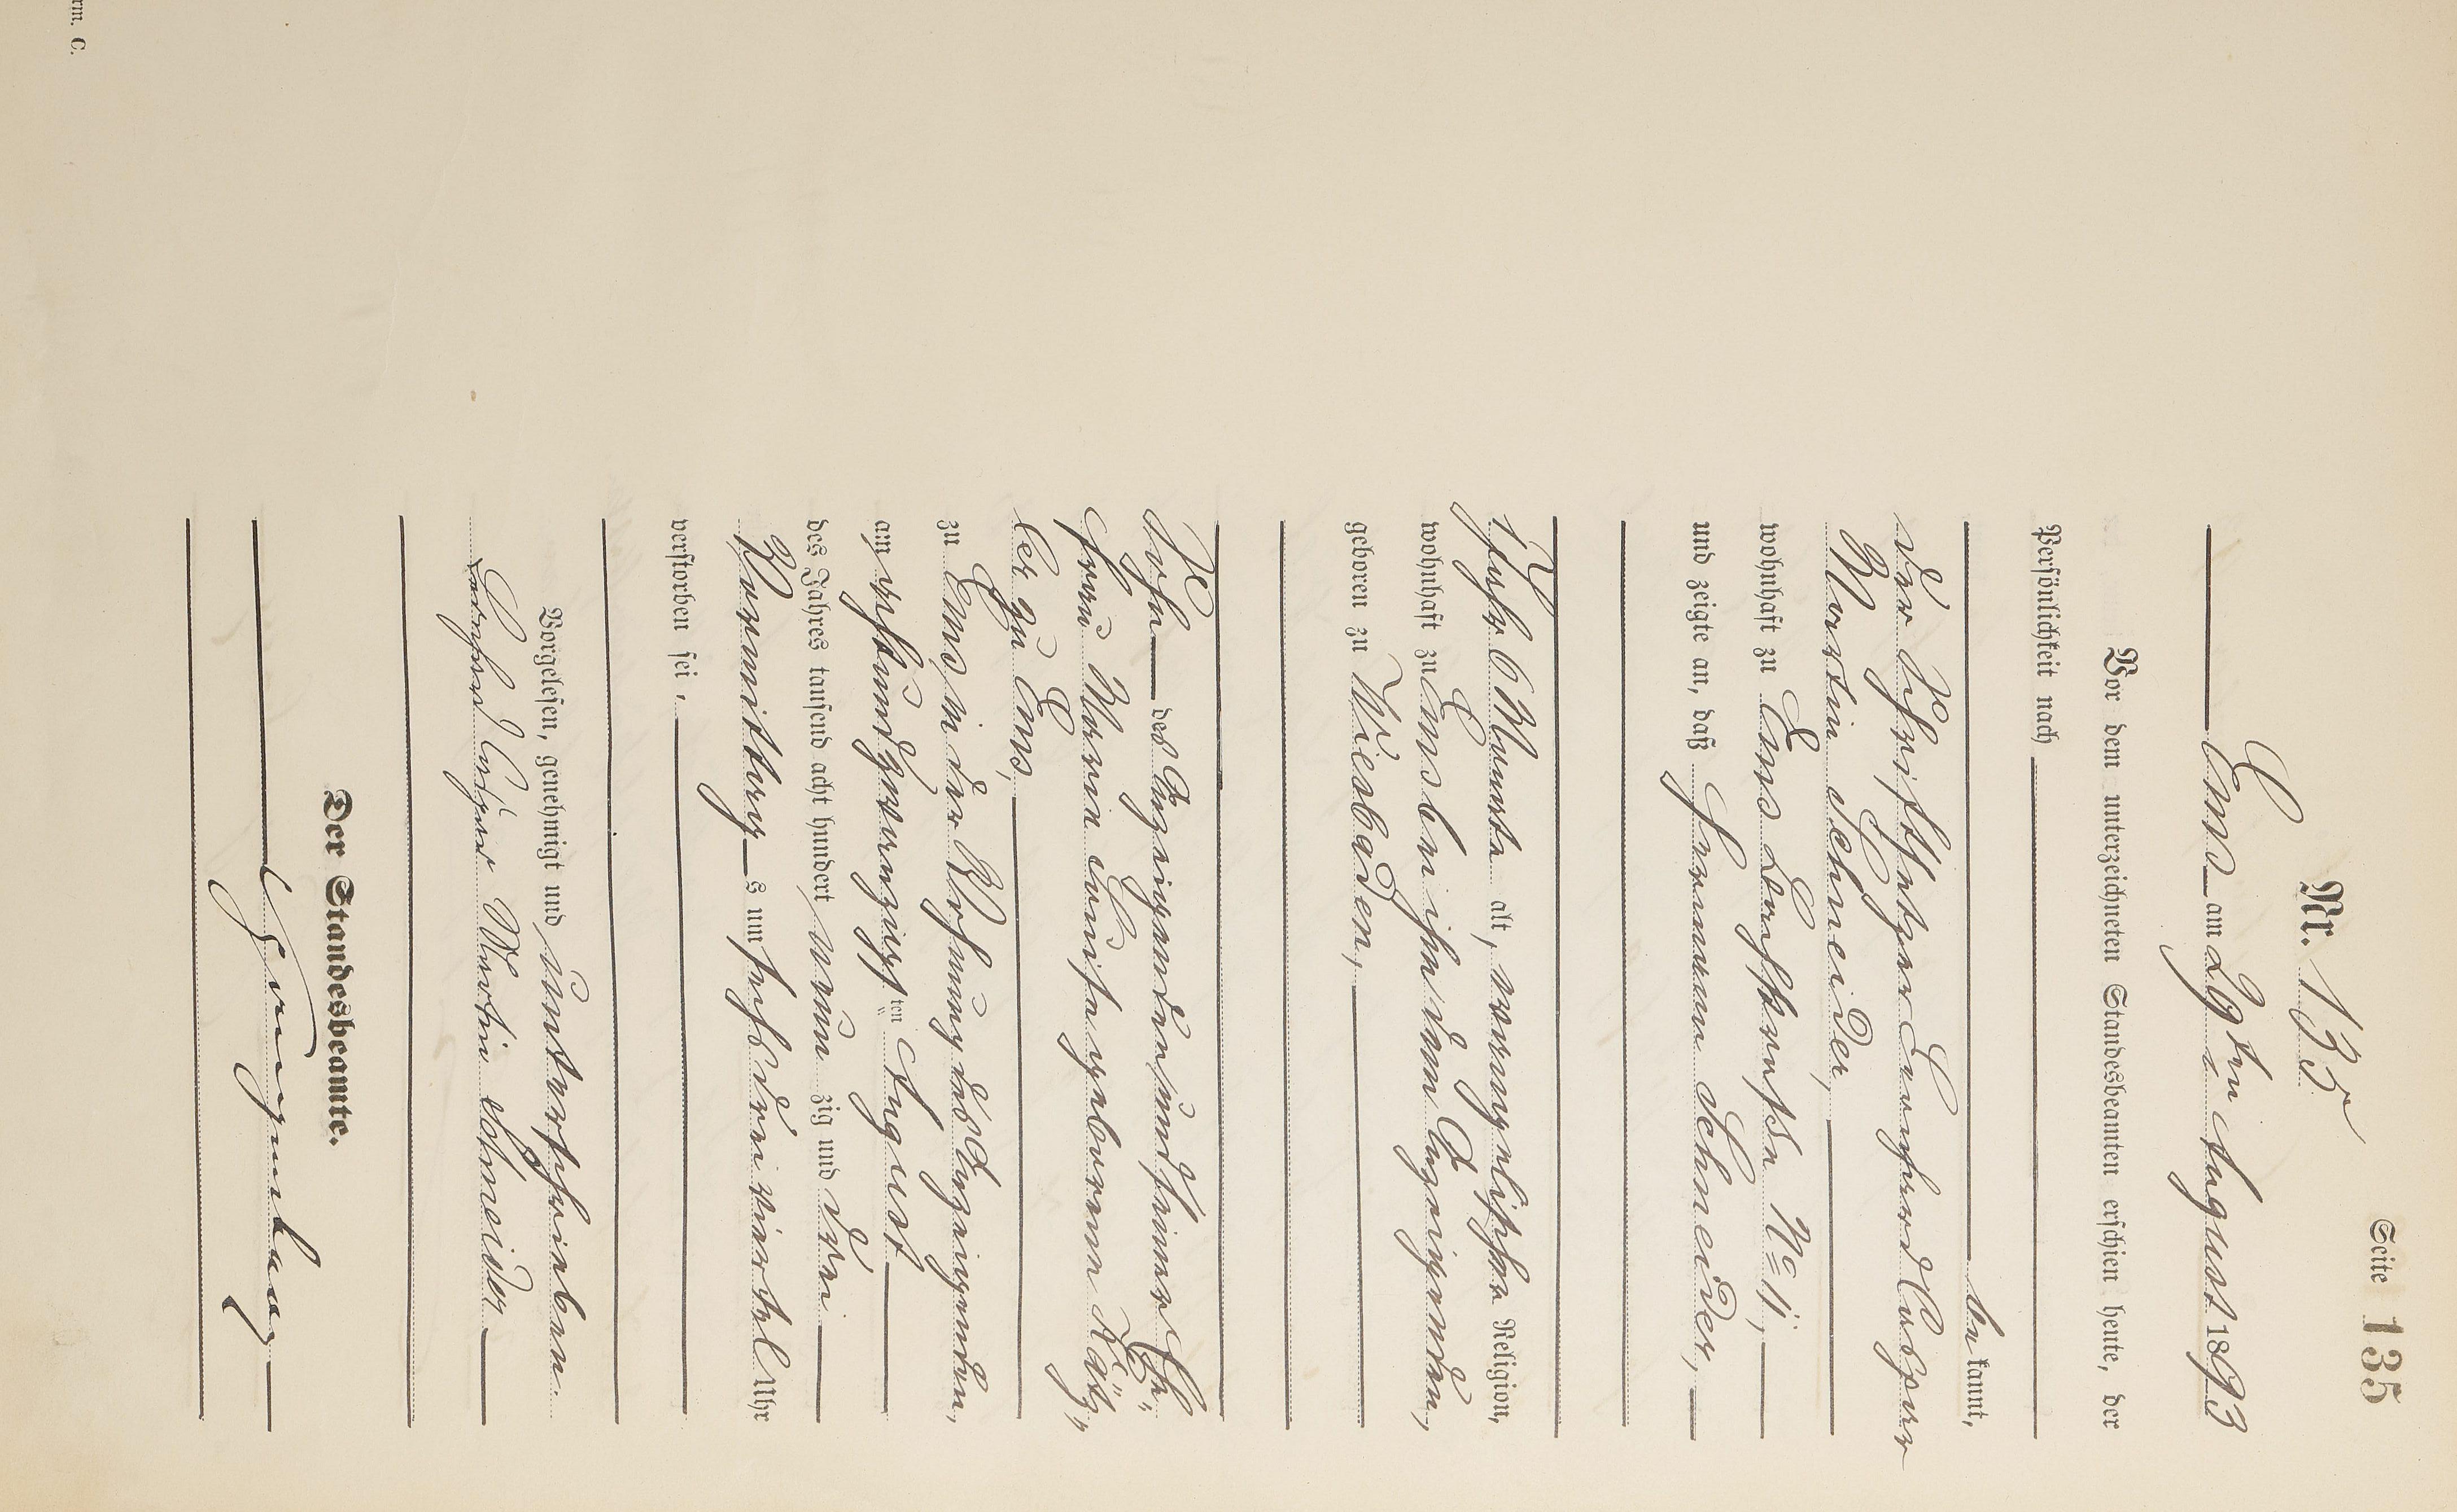 Seite 135
Nr. 135
Ems am 29ten August 1893
Vor dem unterzeichneten Standesbeamten erschien heute, der
Persönlichkeit nach
be kannt,
der Schriftsetzer Leonhard Caspar
Martin Schneider,
wohnhaft zu Ems
und zeigte an, daß Hermann Schneider,
1 Jahr 6 Monate alt, evangelischer Religion,
wohnhaft zu Ems bei ihm dem Anzeigenden,
geboren zu Wiesbaden,
Sohn des Anzeigenden und seiner Ehe-
frau Maria Louise geborenen
zu Ems,
zu Ems, in der Wohnung des Anzeigenden,
am achtundzwanzigsten August
des Jahres tausend acht hundert neun zig und drei
Vormittags um sechs drei viertel Uhr
verstorben sei.
Vorgelesen, genehmigt und unterschrieben.
Leonhard Caspar Martin Schneider
Der Standesbeamte.
rm. C.